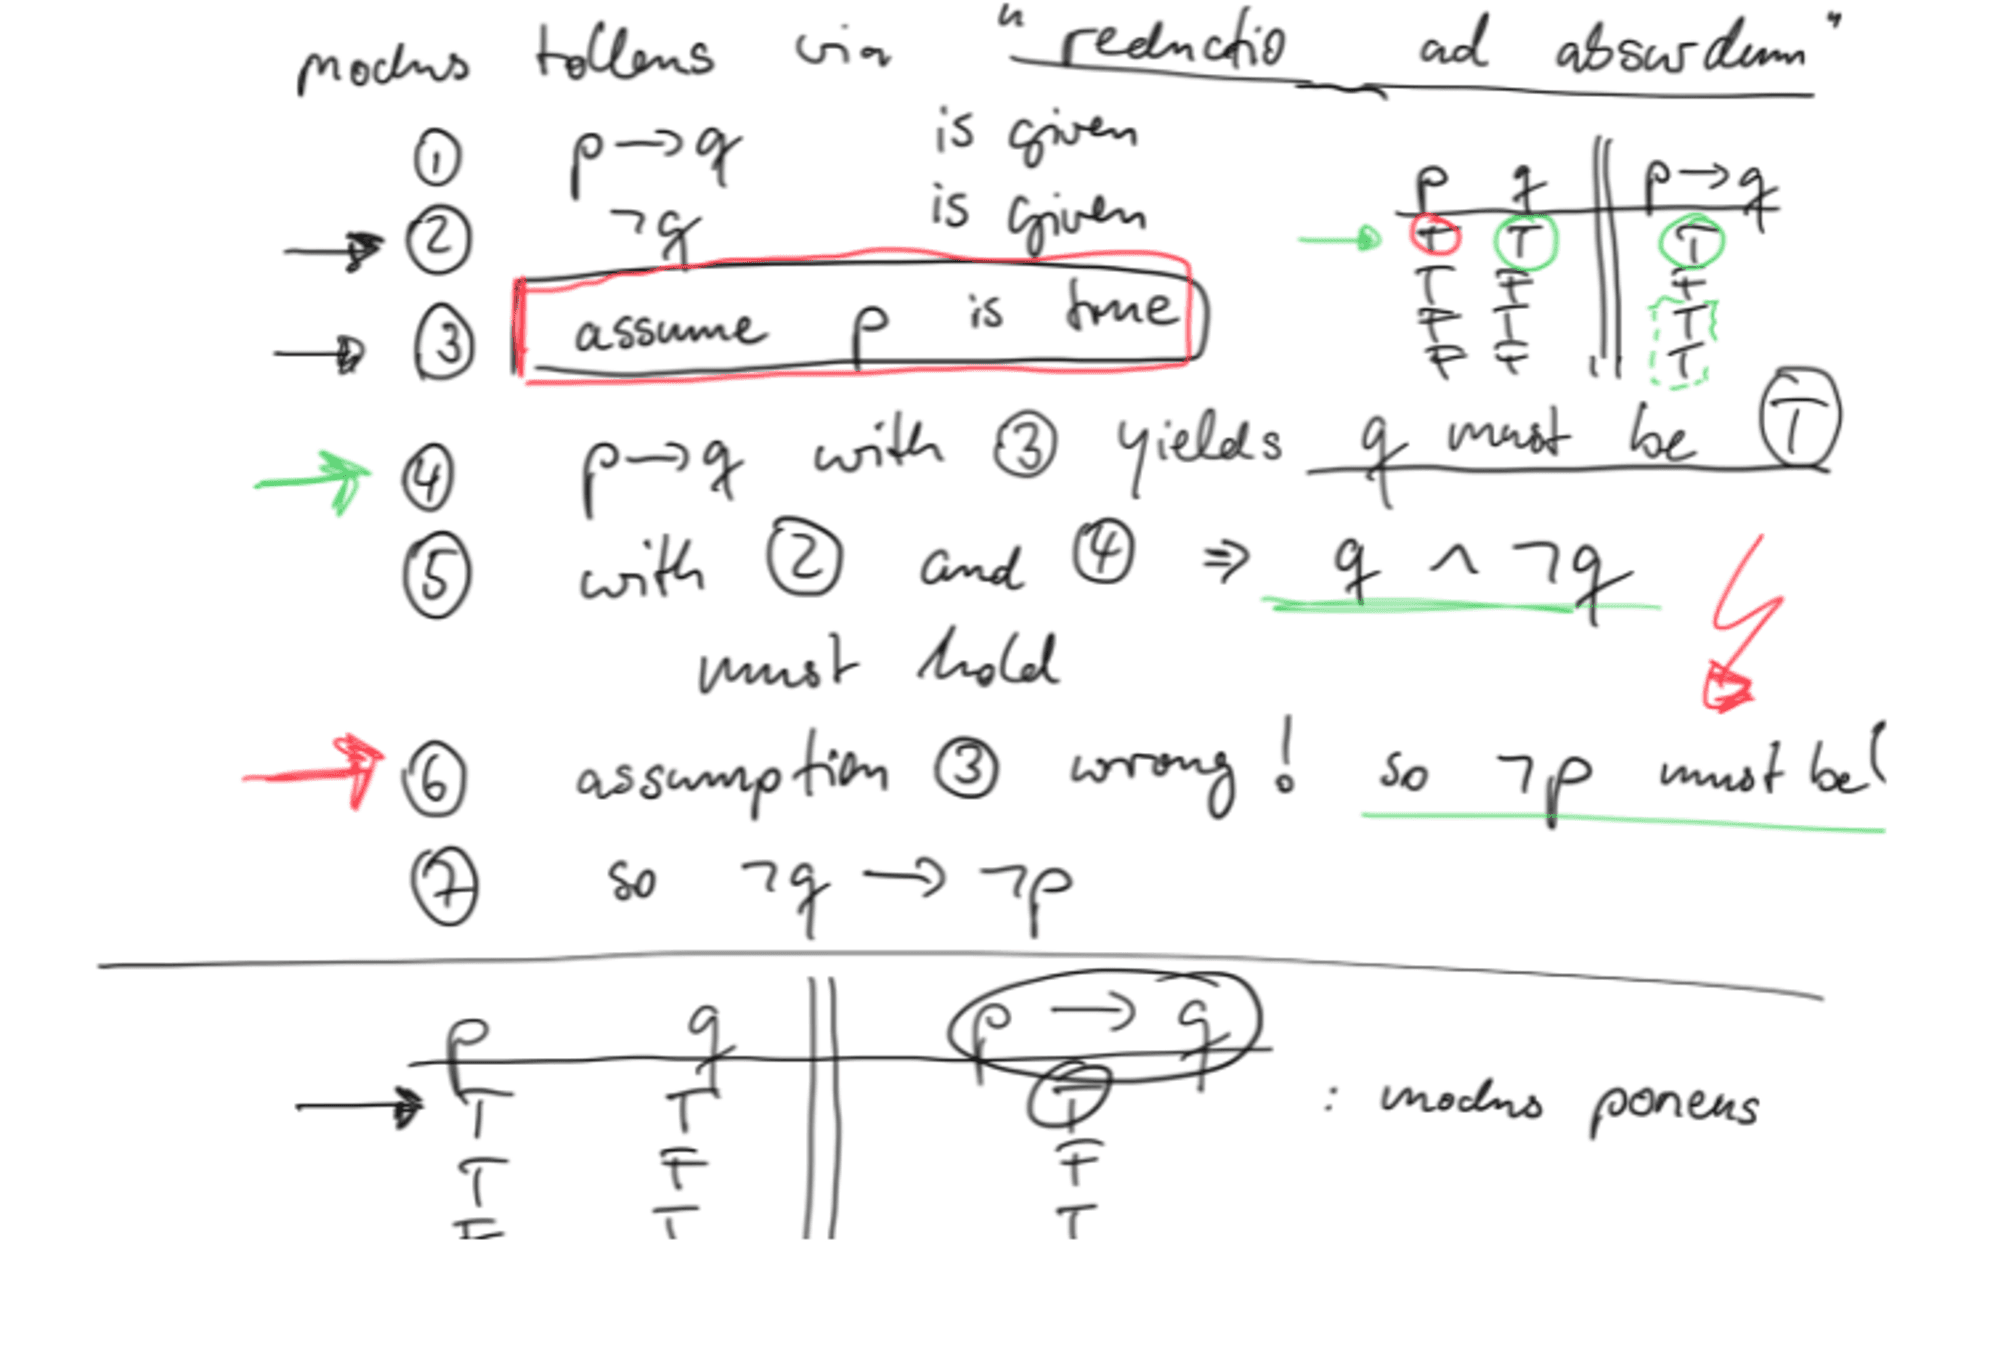 modus tollens via "reductio ad absurdum"
① p → q is given
② ¬q is given
③ assume p is true
p q p → q
T T T
T F F
F T T
F F T
④ p → q with ③ yields q must be T
⑤ with ② and ④ ⇒ q ∧ ¬q
must hold
⑥ assumption ③ wrong! so ¬p must be!
⑦ so ¬q → ¬p
p q p → q
T T T : modus ponens
T F F
F T T